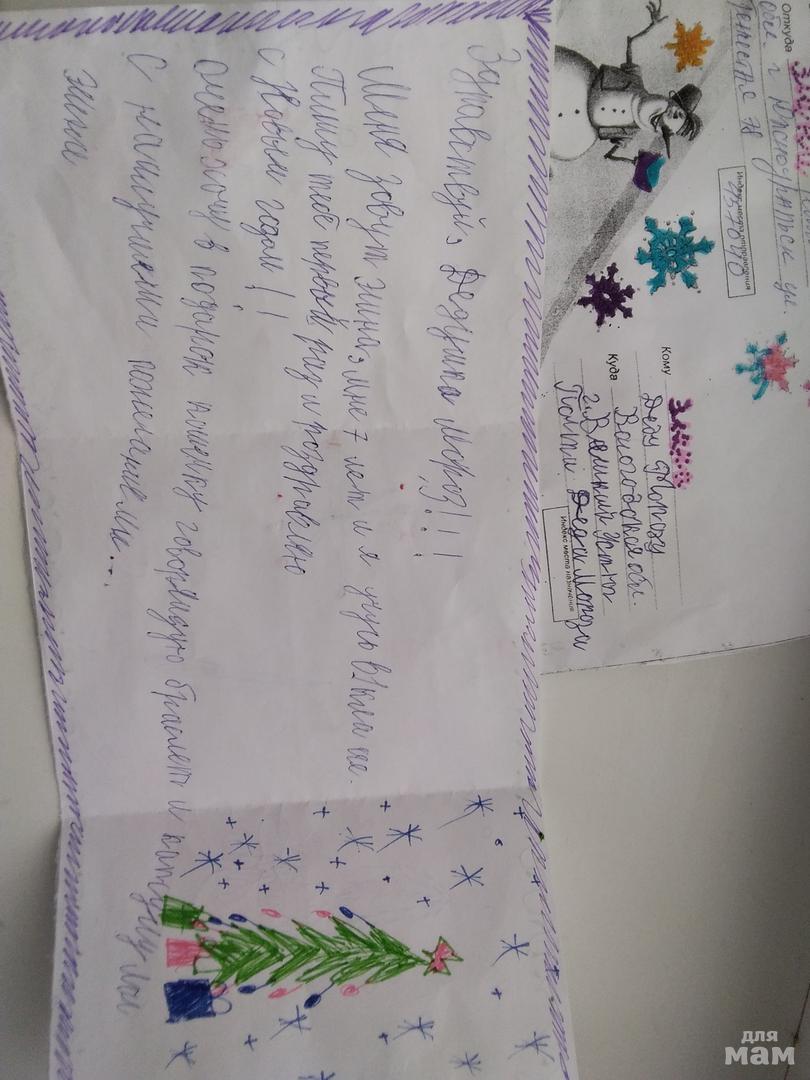 Здравствуй, Дедушка мороз!!!
Меня зовут Эмина, мне 7 лет и я учусь в 1 классе.
Пишу тебе первый раз и поздравляю
с Новым годом!!
очень хочу в подарок кошечку говорящую браслет и
С наилучшеми пожеланиеми...
Эмина
Откуда
обл. г Красноуральск ул.
Индекс места отправления
Кому Деду Морозу
Вологодская обл.
Куда г. Великий Устюг
Почта Деда Мороза
Индекс места назначения
для
мам